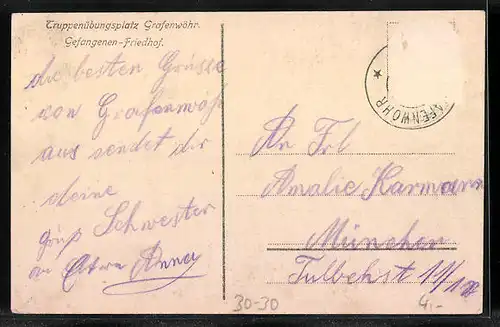 Truppenübungsplatz Grafenwöhr.
Gefangenen-Friedhof.
die besten Grüsse
von Grafenwöhr
aus sendet dir
deine
Schwester
Anna
GRAFENWOHR
An Frl
Amalie Karmann
München
Tulbeckst 11/
30-30
4.-